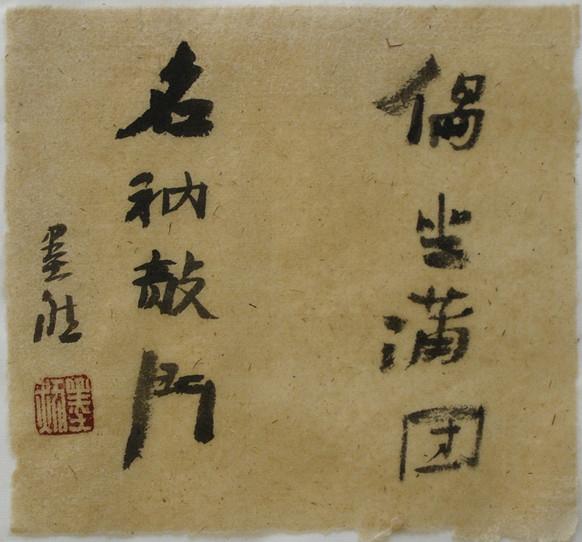 偶坐蒲团
名衲敲門
墨